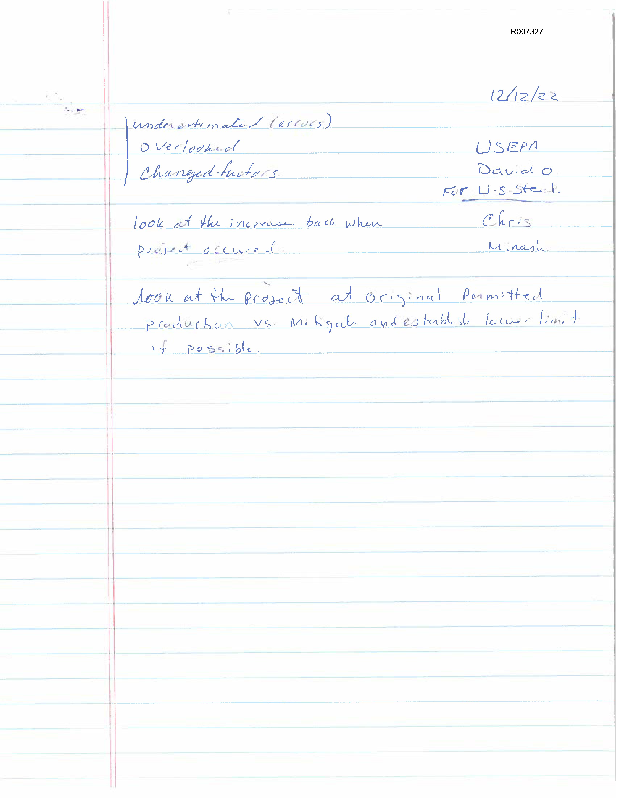 R007327
12/12/22
underestimated (errors)
Overlooked
Changed factors
USEPA
David O
For U.S. Steel
look at the increase back when
project occurred
Chris
look at the project at original permitted
production vs. Mitigate and establish lower limit
if possible.